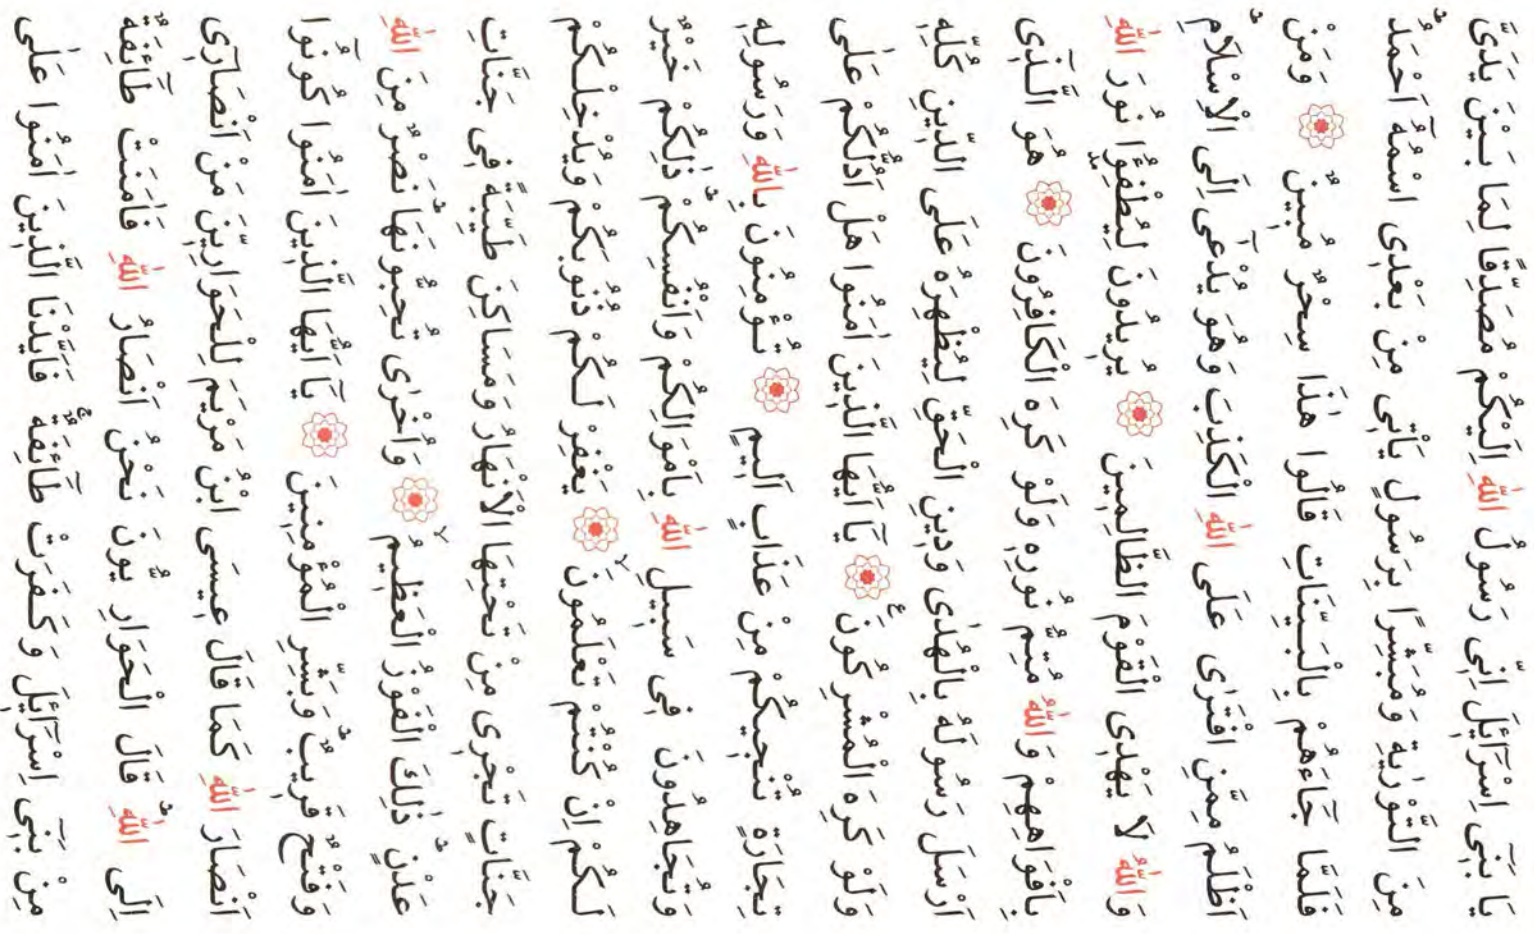 يَا بَنٖٓى اِسْرَٓائٖلَ اِنّٖى رَسُولُ اللّٰهِ اِلَيْكُمْ مُصَدِّقًا لِمَا بَيْنَ يَدَىَّ
مِنَ التَّوْرٰيةِ وَمُبَشِّرًا بِرَسُولٍ يَأْتٖى مِنْ بَعْدِى اسْمُهُٓ اَحْمَدُۜ
فَلَمَّا جَٓاءَهُمْ بِالْبَيِّنَاتِ قَالُوا هٰذَا سِحْرٌ مُبٖينٌ ۝ وَمَنْ
اَظْلَمُ مِمَّنِ افْتَرٰى عَلَى اللّٰهِ الْكَذِبَ وَهُوَ يُدْعٰٓى اِلَى الْاِسْلَامِۜ
وَاللّٰهُ لَا يَهْدِى الْقَوْمَ الظَّالِمٖينَ ۝ يُرٖيدُونَ لِيُطْفِؤُ۫ا نُورَ اللّٰهِ
بِاَفْوَاهِهِمْ وَاللّٰهُ مُتِمُّ نُورِهٖ وَلَوْ كَرِهَ الْكَافِرُونَ ۝ هُوَ الَّذٖٓى
اَرْسَلَ رَسُولَهُ بِالْهُدٰى وَدٖينِ الْحَقِّ لِيُظْهِرَهُ عَلَى الدّٖينِ كُلِّهٖ
وَلَوْ كَرِهَ الْمُشْرِكُونَ ࣖ ۝ يَٓا اَيُّهَا الَّذٖينَ اٰمَنُوا هَلْ اَدُلُّكُمْ عَلٰى
تِجَارَةٍ تُنْجٖيكُمْ مِنْ عَذَابٍ اَلٖيمٍ ۝ تُؤْمِنُونَ بِاللّٰهِ وَرَسُولِهٖ
وَتُجَاهِدُونَ فٖى سَبٖيلِ اللّٰهِ بِاَمْوَالِكُمْ وَاَنْفُسِكُمْۜ ذٰلِكُمْ خَيْرٌ
لَكُمْ اِنْ كُنْتُمْ تَعْلَمُونَۙ ۝ يَغْفِرْ لَكُمْ ذُنُوبَكُمْ وَيُدْخِلْكُمْ
جَنَّاتٍ تَجْرٖى مِنْ تَحْتِهَا الْاَنْهَارُ وَمَسَاكِنَ طَيِّبَةً فٖى جَنَّاتِ
عَدْنٍۜ ذٰلِكَ الْفَوْزُ الْعَظٖيمُۙ ۝ وَاُخْرٰى تُحِبُّونَهَاۜ نَصْرٌ مِنَ اللّٰهِ
وَفَتْحٌ قَرٖيبٌۜ وَبَشِّرِ الْمُؤْمِنٖينَ ۝ يَٓا اَيُّهَا الَّذٖينَ اٰمَنُوا كُونُٓوا
اَنْصَارَ اللّٰهِ كَمَا قَالَ عٖيسَى ابْنُ مَرْيَمَ لِلْحَوَارِيّٖنَ مَنْ اَنْصَارٖٓى
اِلَى اللّٰهِۜ قَالَ الْحَوَارِيُّونَ نَحْنُ اَنْصَارُ اللّٰهِ فَاٰمَنَتْ طَٓائِفَةٌ
مِنْ بَنٖٓى اِسْرَٓائٖلَ وَكَفَرَتْ طَٓائِفَةٌۚ فَاَيَّدْنَا الَّذٖينَ اٰمَنُوا عَلٰى